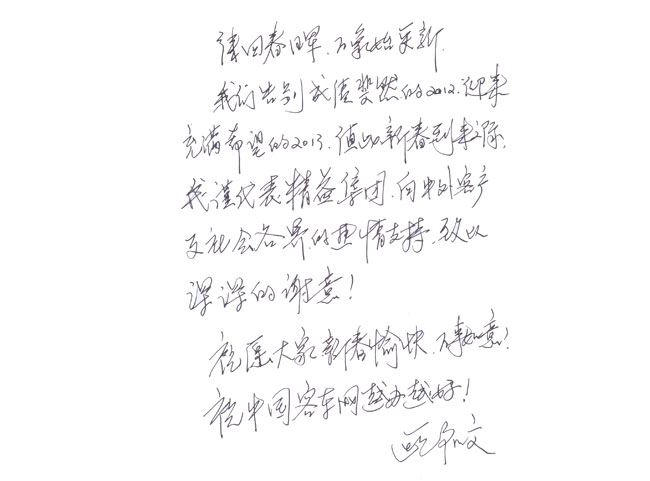 律回春晖，万象始更新。
我们告别成绩斐然的2012，迎来
充满希望的2013，值此新春到来之际，
我谨代表精益集团，向中外客户
及社会各界的热情支持，致以
深深的谢意！
祝愿大家新春愉快，万事如意！
祝中国客车网越办越好！
文